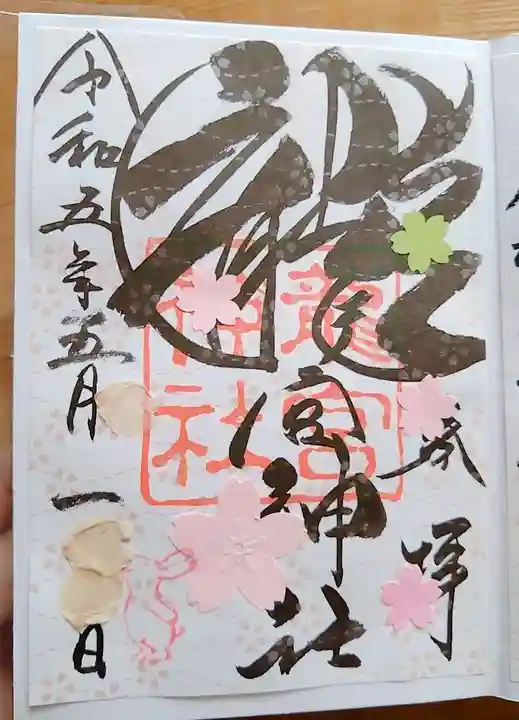 奉拝
龍宮神社
龍宮
神社
令和五年五月一日